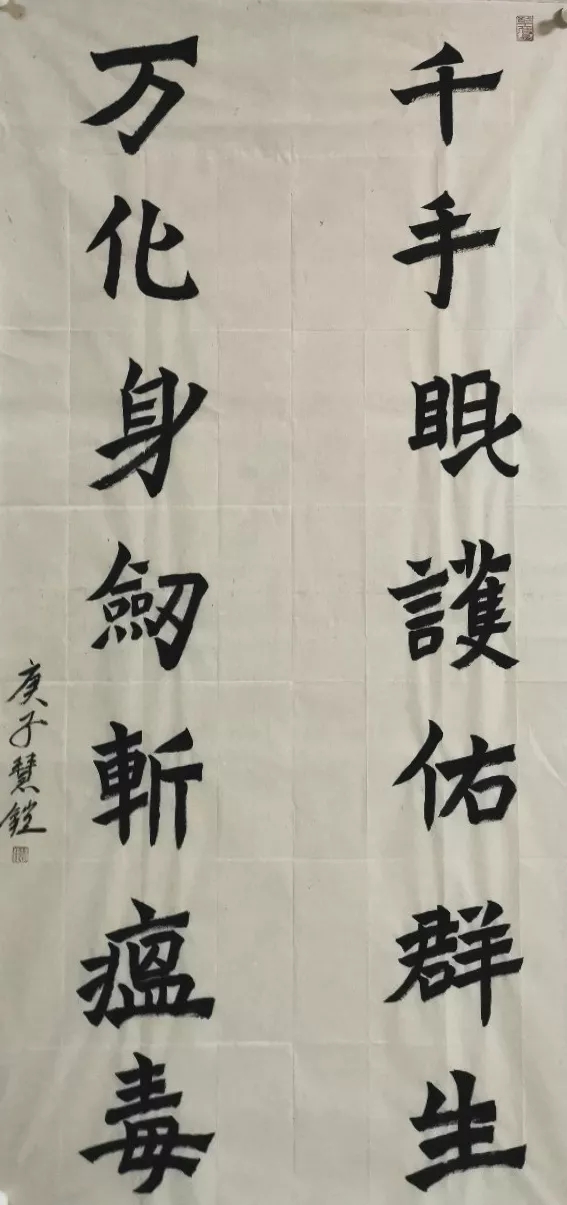 千手眼護佑群生
万化身劒斬瘟毒
庚子慧鎧